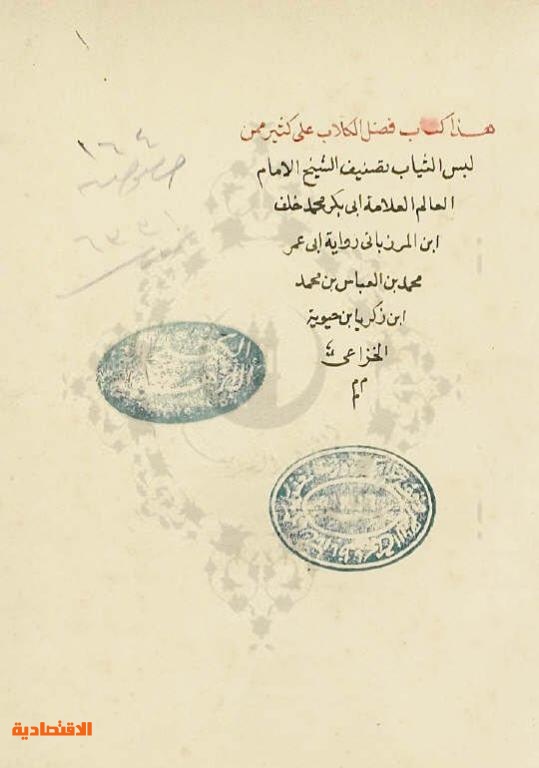 ١٦٤
هذا كتاب فضل الكلاب على كثير ممن
لبس الثياب تصنيف الشيخ الامام
العالم العلامة ابى بكر محمد خلف
ابن المرزبانى رواية ابى عمر
محمد بن العباس بن محمد
ابن زكريا بن حيوية
الخزاعى
الاقتصادية